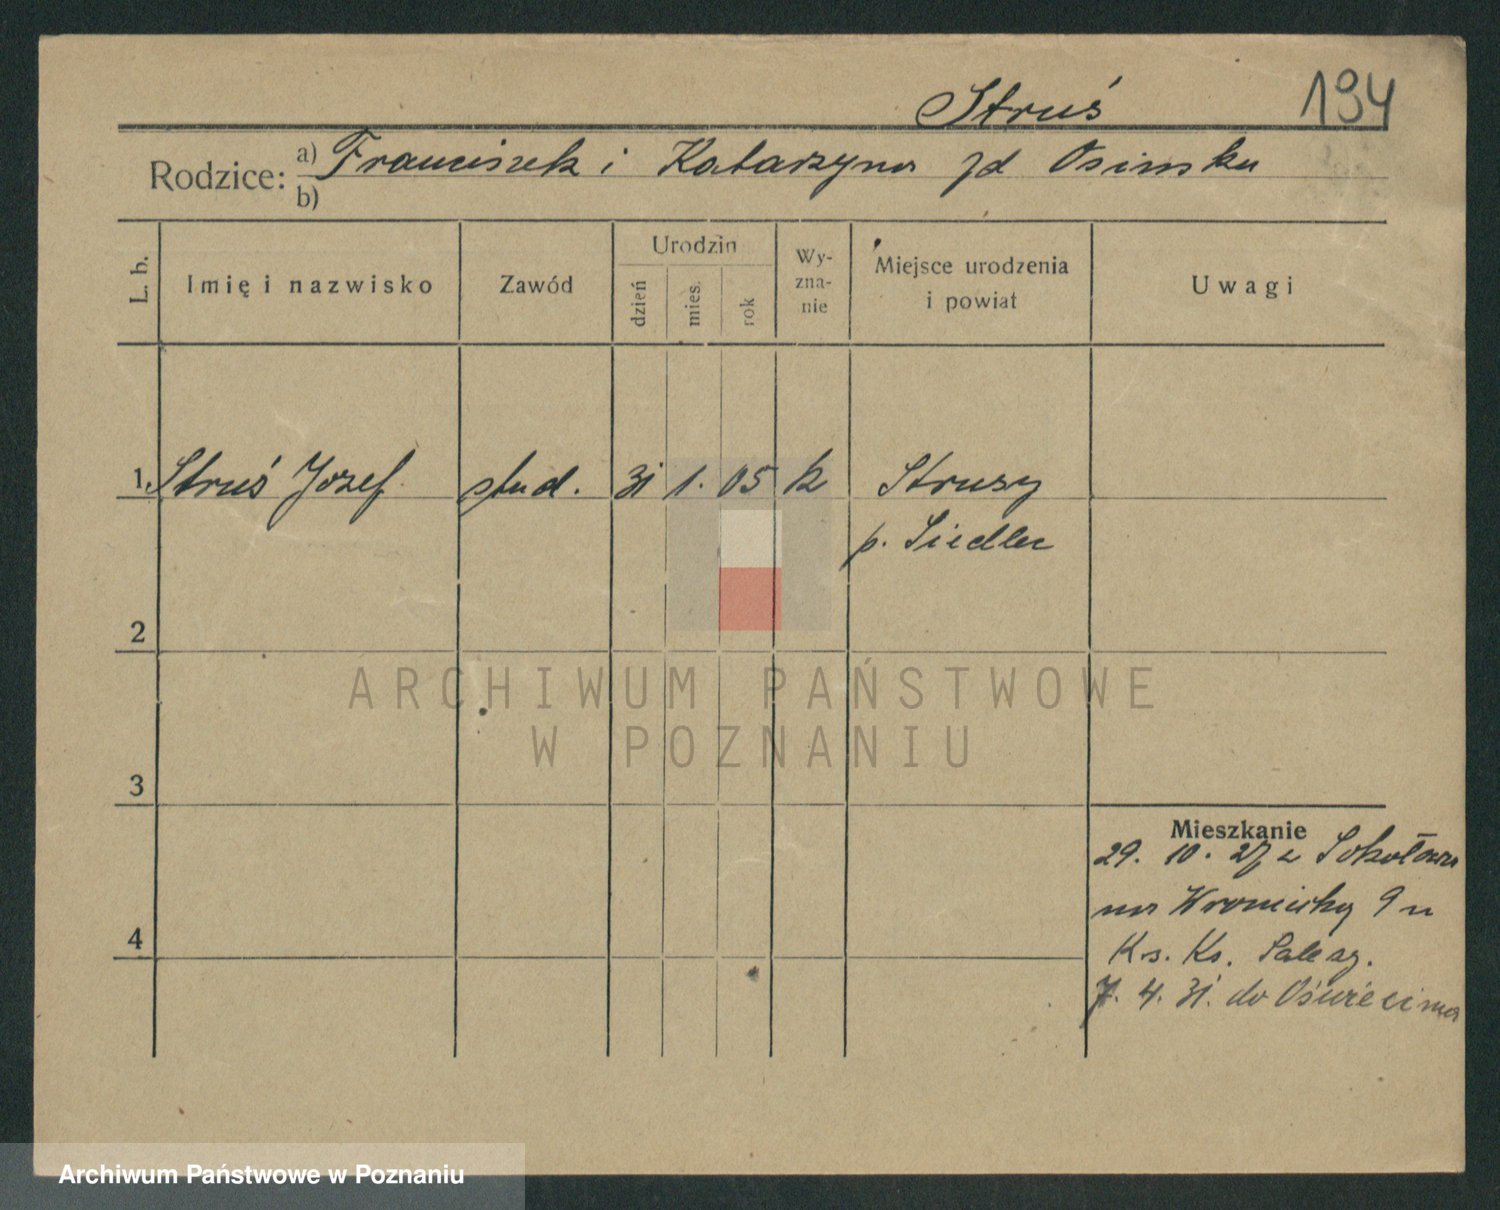 Struś 194
Rodzice: a) Franciszek i Katarzyna zd Osinska
b)
L. b. Imię i nazwisko Zawód Urodzin dzień mies. rok Wyznanie Miejsce urodzenia i powiat Uwagi
1. Struś Jozef stud. 31 1. 05 k Strusy
p. Siedlec
2
ARCHIWUM PAŃSTWOWE
W POZNANIU
3
Mieszkanie
29. 10. 27 z Sokołowa
na Wroniecką 9 u
4
Ks. Ks. Salezy.
7. 4. 31. do Oświecima
Archiwum Państwowe w Poznaniu